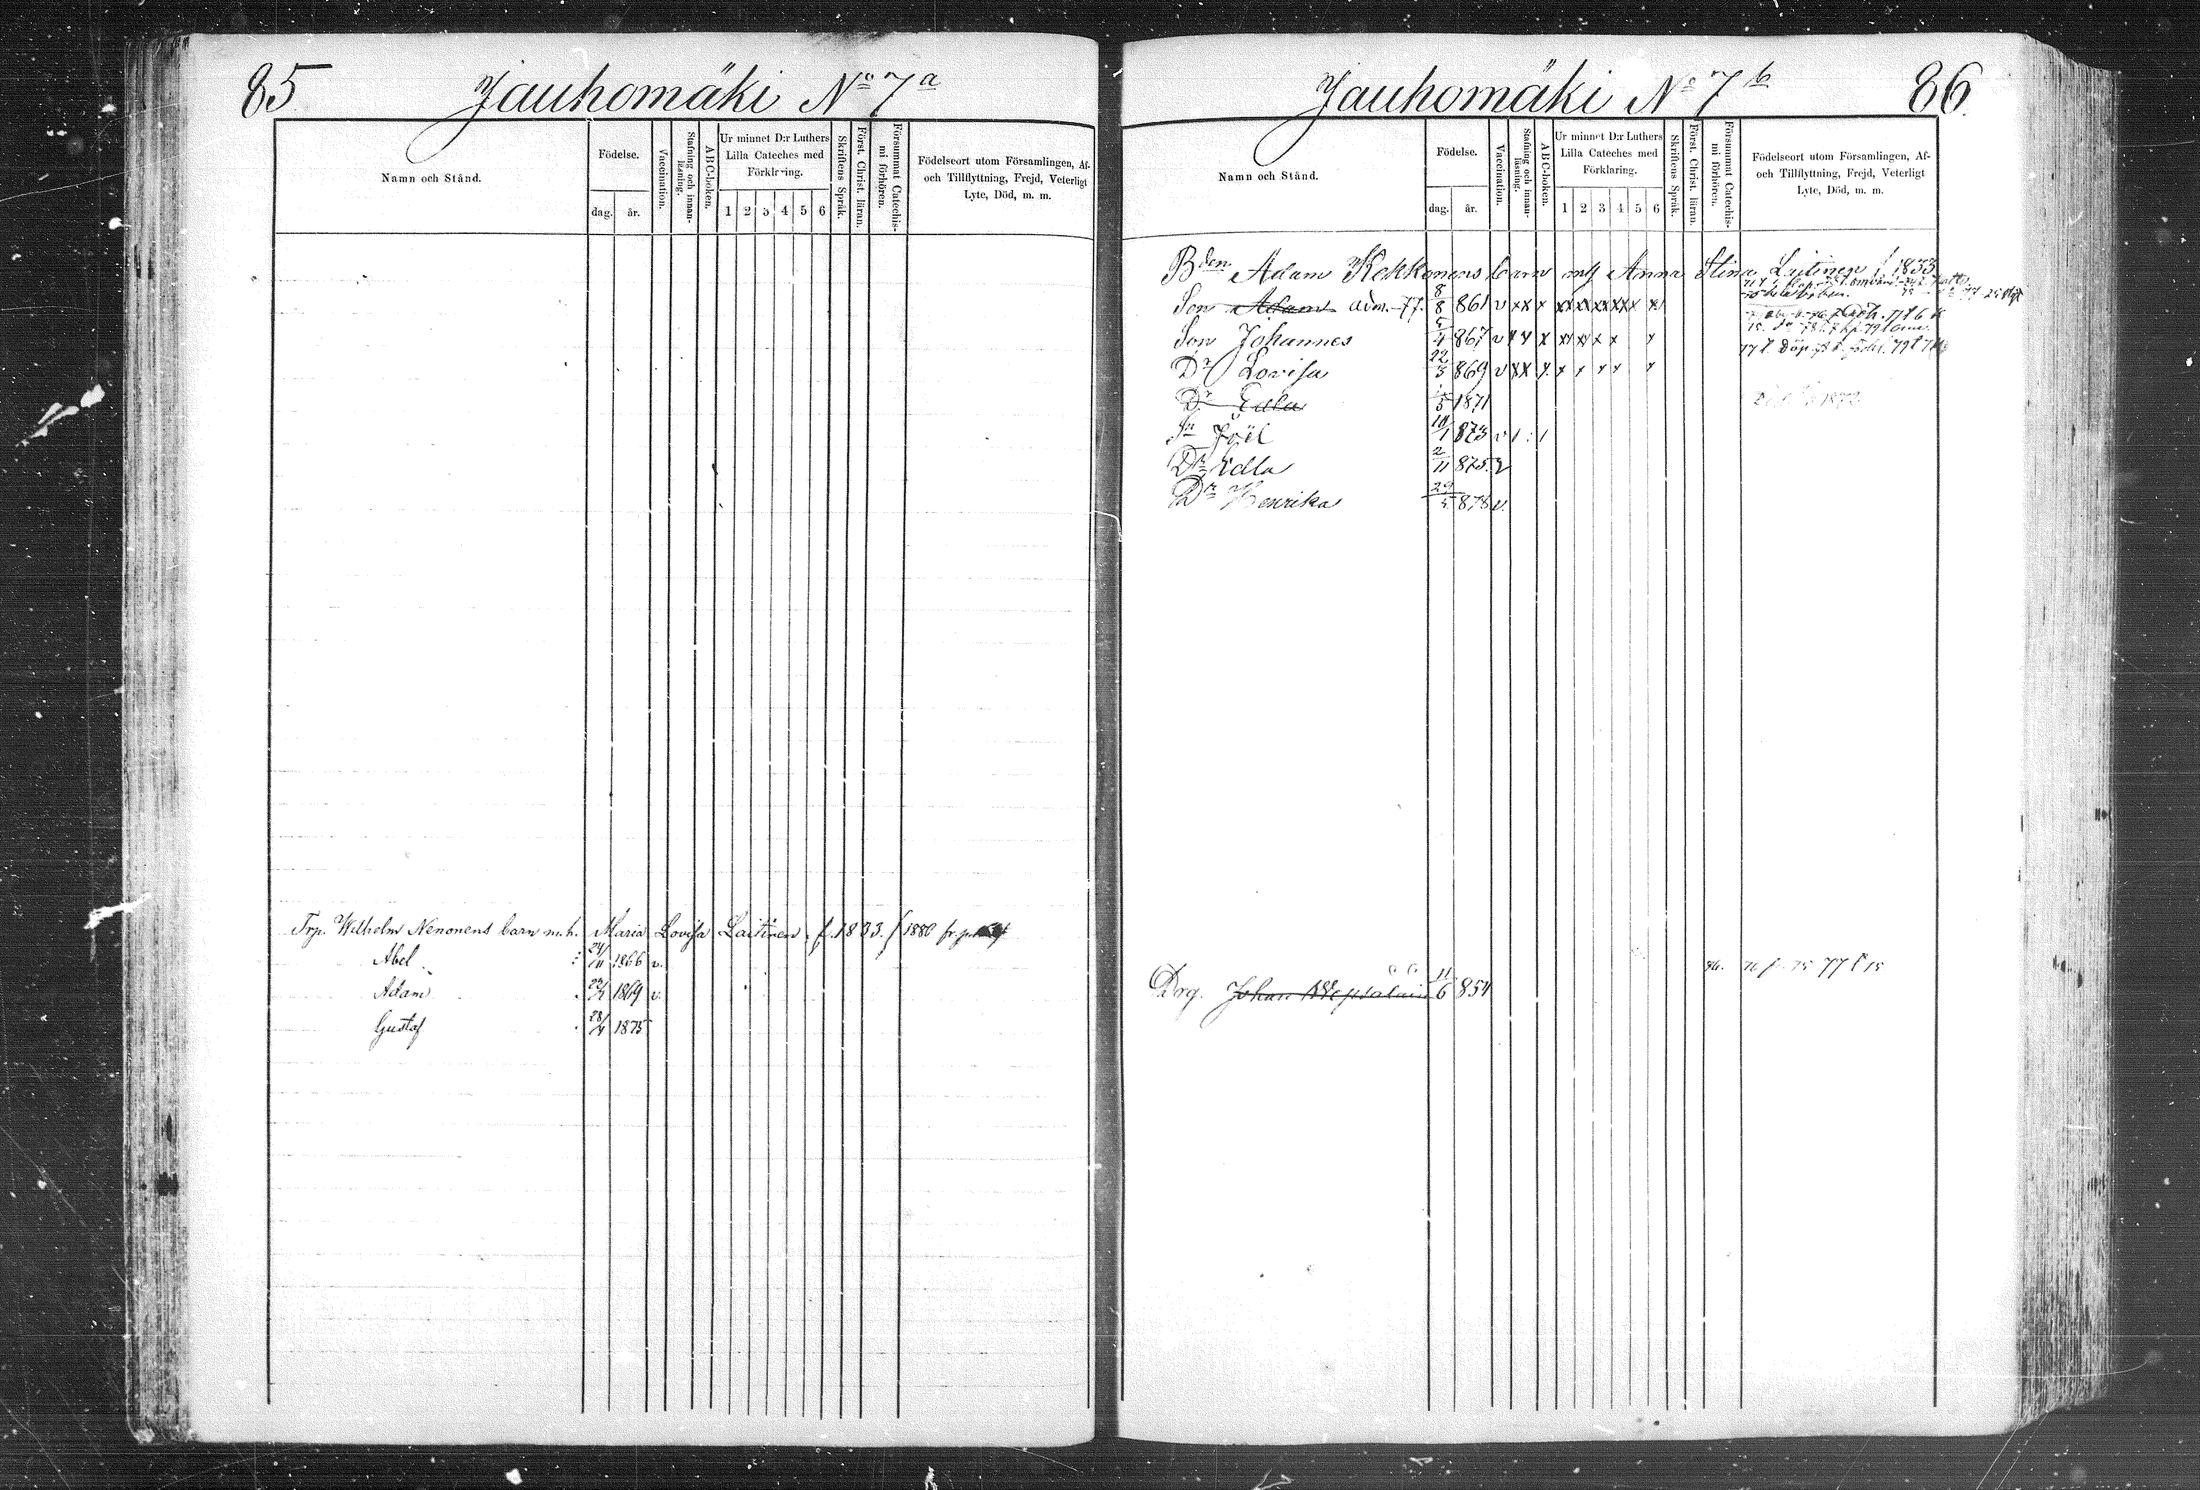 85 Jauhomäki No 7 a
Namn och Stånd.
Födelse.
dag. år.
Vaccination.
Stafning och innan-
läsning.
ABC-boken.
Ur minnet D:r Luthers
Lilla Cateches med
Förklaring.
1 2 3 4 5 6
Skriftens Språk.
Först. Christ. läran.
Försummat Catechis-
mi förhören.
Födelseort utom Församlingen, Af-
och Tillflyttning, Frejd, Veterligt
Lyte, Död, m. m.
Trp. Wilhelm Nenonens barn m. h. Maria Lovisa Laitinen f. 1833. 1880 fr.
Abel 24/11 1866 v.
Adam 1869 v.
Gustaf 28/4 1875
Jauhomäki No 7 b 86.
Namn och Stånd.
Födelse.
dag. år.
Vaccination.
Stafning och innan-
läsning.
ABC-boken.
Ur minnet D:r Luthers
Lilla Cateches med
Förklaring.
1 2 3 4 5 6
Skriftens Språk.
Först. Christ. läran.
Försummat Catechis-
mi förhören.
Födelseort utom Församlingen, Af-
och Tillflyttning, Frejd, Veterligt
Lyte, Död, m. m.
Bden Adam Kekkonens barn m/ Anna Stina Laitinen f. 1833
Son Adam adm. -77. 8/8 861 v xx x xx xx xx xx x x
Son Johannes 5/4 867 v x x x xx xx x x x
Dr Lovisa 22/3 869 v xx x x x x x x
Dr Edla /5 1871 1872
Sn Joël 10/1 873 v
Dr Edla 2/11 875 v
Dr Henrika 29/5 878 v.
Drg. Johan 11/6 854 76. 75 77 15